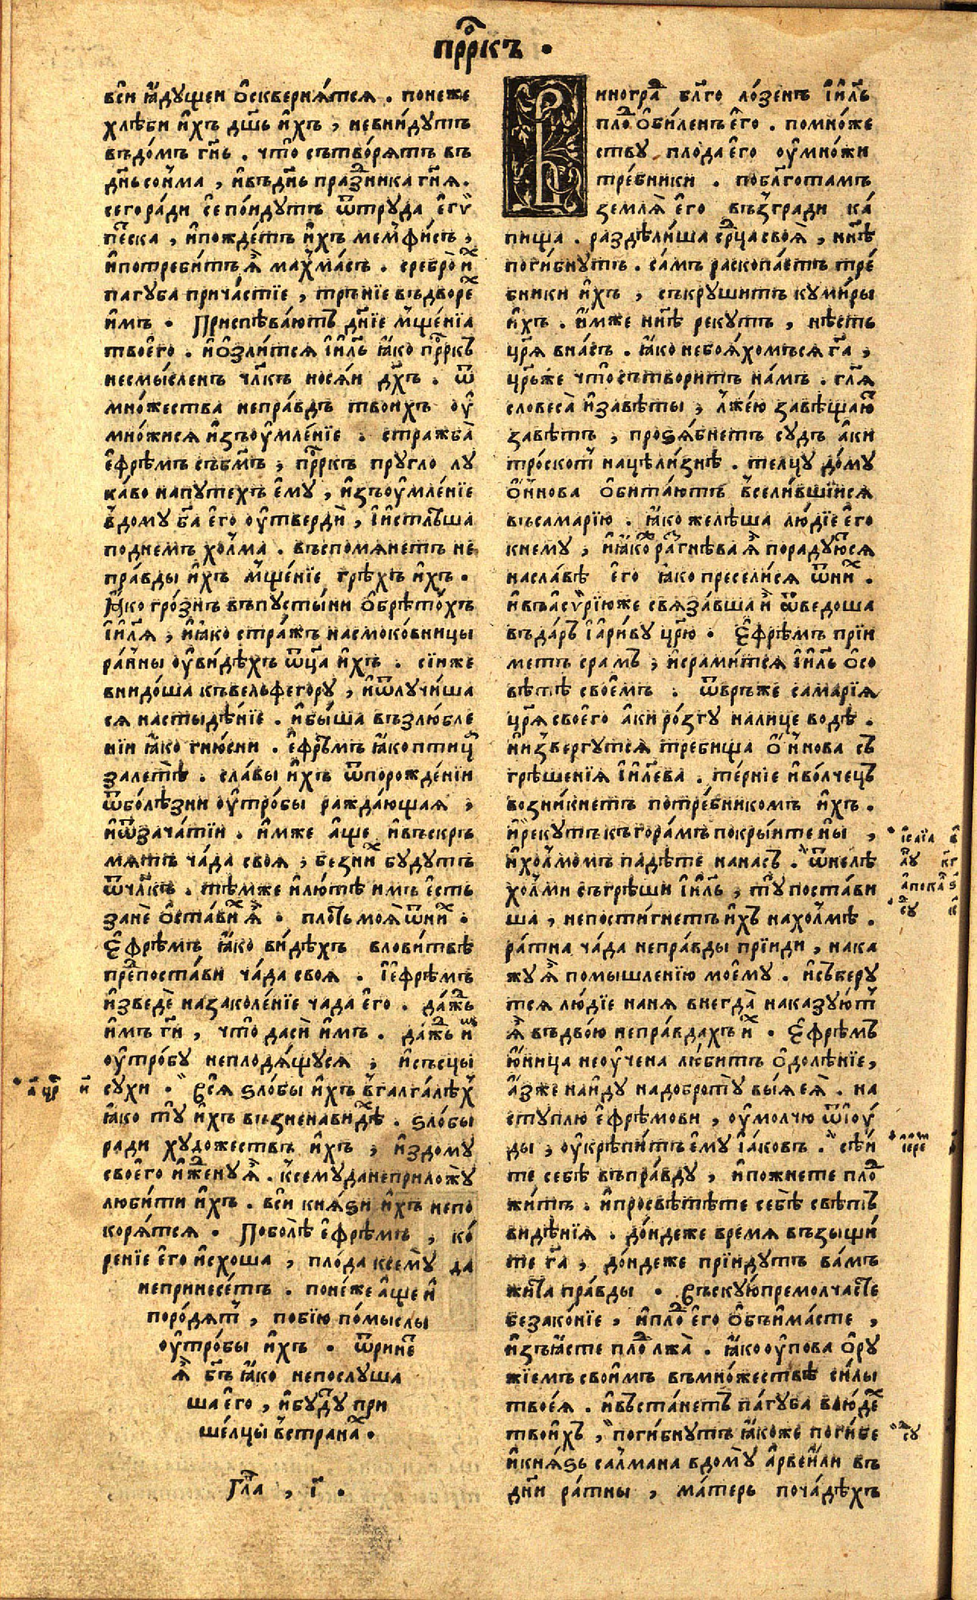 прⷪ҇ркъ .
вси ꙗдущеи ѻсквернѧтсѧ . понеже
хлѣби ихъ дш҃ѣ ихъ , невнидутъ
въдомъ гн҃ь . что сътворѧтъ въ
дн҃ь соима , ивъдн҃ь праꙁдника гн҃ѧ .
сегоради се поидутъ ѿтруда егѵ
пеⷮска , ипождетъ ихъ мемфисъ ,
ипотребитъ ѧ махмасъ . сребро иⷯ
пагуба причастїе , трънїе въдвореⷯ
имъ . Приспѣваютъ дн҃їе мщенїа
твоего . иѻзлитсѧ їи҃ль ꙗко прⷪ҇ркъ
несмысленъ чл҃къ носѧи дх҃ъ . ѿ
множества неправдъ твоихъ оу
множисѧ изъоумленїе . стражба
ефрѣмъ събг҃мъ , прⷪ҇ркъ пругло лу
каво напутехъ ему , изъоумленїе
вдому бг҃а его оутверди , їистлѣша
поднемъ холма . въспомѧнетъ не
правды ихъ мщенїе грѣхъ ихъ .
Ꙗко грознъ въпустыни ѻбрѣтохъ
їи҃лѧ , иꙗко стражъ насмоковницы
ранны оувидѣхъ ѿц҃а ихъ . сїиже
внидоша къвельфегору , иѿлучиша
сѧ настыдѣнїе . ибыша възлюбле
нїи ꙗко гнюсни . ефрѣмъ ꙗкоптицⷶ
залетѣ . славы ихъ ѿпорожденїи
ѿболѣзни оутробы раждающаѧ ,
иѿзачатїи . имже аще ивъскръ
мѧтъ чада своѧ , безниⷯ будутъ
ѿчл҃къ . тѣмже илютѣ имъ есть
зане ѻставиⷯ ѧ . плоть моѧ ѿниⷯ .
Ефрѣмъ ꙗко видѣхъ вловитвѣ
преⷣпостави чада своѧ . їефрѣмъ
изведе назаколенїе чада его . даждь
имъ гн҃и , что даси имъ . даждь иⷨ
оутробу неплодѧщуюсѧ , исъсцы
сухи . Всѧ ѕлобы ихъ вгалгалѣхъ
ꙗко ту ихъ възненавидѣ . ѕлобы
ради художествъ ихъ , издому
своего иженуѧ . ксемуданеприложу
любити ихъ . вси кнѧѕи ихъ непо
корѧтсѧ . Поболѣ ефрѣмъ , ко
ренїе его исхоша , плода ксему да
непринесетъ . понеже аще и
породѧтъ , побїю помыслы
оутробы ихъ . ѿринеⷮ
ѧ бг҃ъ ꙗко непослуша
ша его , ибудⷹ при
шелцы встранаⷯ .
Гл҃а , і҃ .
Виноградъ бл҃го лозенъ їи҃ль
плоⷣ ѻбиленъ его . помноже
ству плода его оумножи
требники . поблаготамъ
землѧ его възгради ка
пища . раздѣлиша срⷣца своѧ , нн҃ѣ
погибнутъ . самъ раскопаетъ тре
бники ихъ , съкрушитъ кумиры
ихъ . имже нн҃ѣ рекутъ , нѣсть
цр҃ѧ внасъ . ꙗко небоꙗхомъсѧ гд҃а ,
цр҃ьже чтосътворитъ намъ . гл҃ѧ
словеса изавѣты , лжею завѣщаюⷮ
завѣтъ , проѕѧбнетъ судъ аки
троскоⷮ нацѣлизнѣ . телцу дому
ѻинова ѻбитаютъ вселившїисѧ
въсамарїю . ꙗко желѣша людїе его
кнему , иꙗкоⷤ разгнѣва ѧ порадуютсѧ
наславѣ его ꙗко преселисѧ ѿниⷯ .
ивъасѵрїюже свѧзавша и ѿведоша
въдаръ їариву цр҃ю . Ефрѣмъ прїи
метъ срамъ , исрамитсѧ їи҃ль ѻсо
вѣтѣ своемъ . ѿвръже самарїѧ
цр҃ѧ своего аки розгу налице водѣ .
иизвергутсѧ требища ѻинова съ
грѣшенїѧ їи҃лева . тернїе иволчецъ
возникнетъ потребникомъ ихъ .
ирекутъ къгорамъ покрыите ны ,
ихолмомъ падѣте нанасъ . ѿнелѣ
холми съгрѣши їи҃ль , ту постави
ша , непостигнетъ ихъ нахолмѣ .
ратна чада неправды прїиди , нака
жу ѧ помышленїю моему . исъберу
тсѧ людїе нанѧ внегда наказуюⷮ
ѧ въдвою неправдахъ иⷯ . Ефрѣмъ
юница неоучена любитъ ѻдолѣнїе ,
азже наиду надоброту выѧ еѧ . на
ступлю ефрѣмови , оумолчю ѿїоу
ды , оукрѣпитъ ему їаковъ . сѣи
те себѣ въправду , ипожнете плоⷣ
житъ . ипросвѣтѣте себѣ свѣтъ
видѣнїѧ . дондеже времѧ възыщи
те гд҃а , дондеже прїидутъ вамъ
жита правды . Въскуюпремолчасте
безаконїе , иплоⷣ его ѻбъимасте ,
изъꙗсте плоⷣ лжа . ꙗкооупова ѻру
жїемъ своимъ въмножествѣ силы
твоеѧ . ивъстанетъ пагуба влюдеⷯ
твоихъ , погибнутъ ꙗкоже погибе
икнѧѕь салмана вдому арвеили въ
дн҃и ратны , матерь почадѣхъ